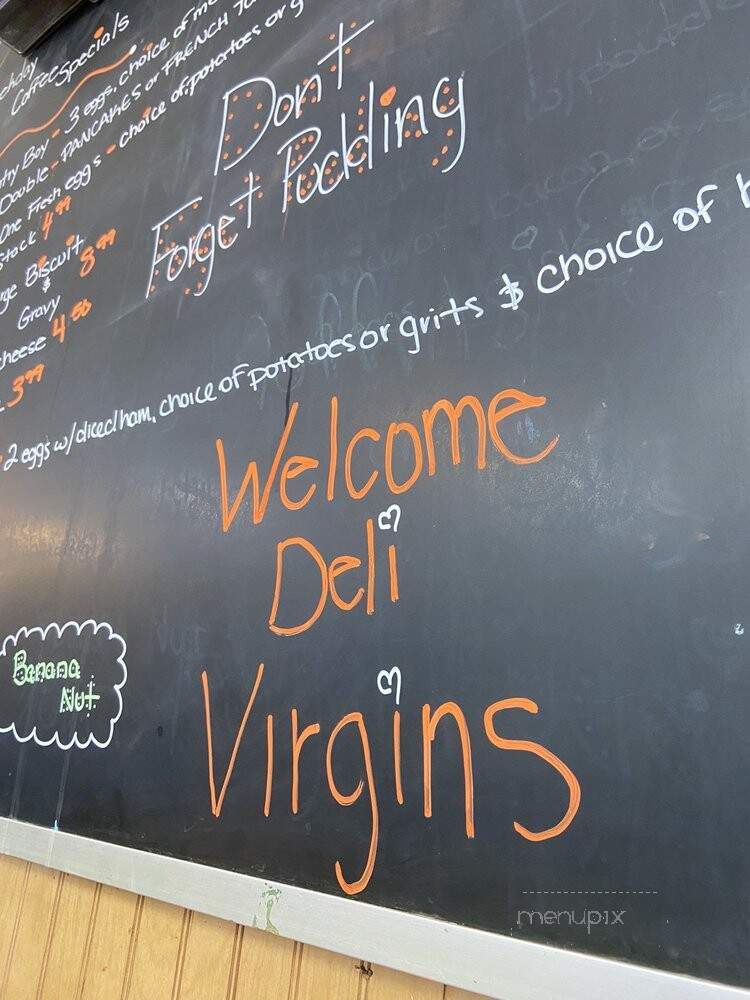 Coffee Specials
Boy - 3 eggs, choice of
Double - PANCAKES or FRENCH
One Fresh eggs - choice of potatoes or g
4.99
Biscuit
&
Gravy 8.99
cheese 4.50
3.99
Don't
Forget Pudding
2 eggs w/diced ham, choice of potatoes or grits & choice of
Welcome
Deli
Virgins
Banana
Nut
menupix